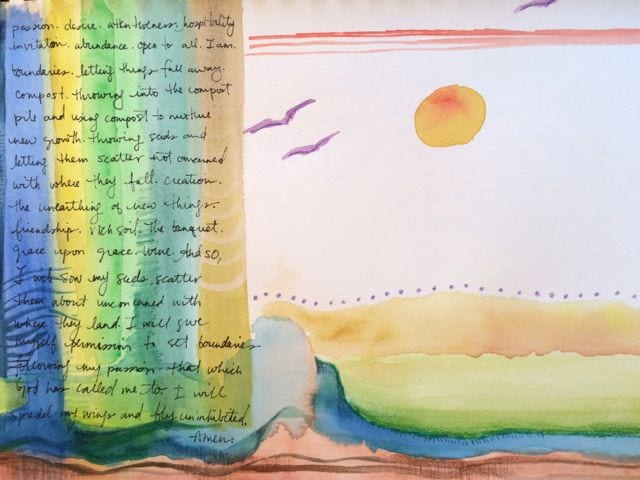 passion. desire. attentiveness. hospitality
invitation. abundance. open to all. I am.
boundaries. letting things fall away.
compost. throwing into the compost
pile and using compost to nurture
new growth. throwing seeds and
letting them scatter not concerned
with where they fall. creation.
the unearthing of new things.
friendship. rich soil. The banquet.
grace upon grace. wine. And so,
I will sow my seeds, scatter
them about unconcerned with
where they land. I will give
myself permission to set boundaries
following my passion - that which
God has called me to. I will
spread my wings and fly uninhibited.
-Amen.